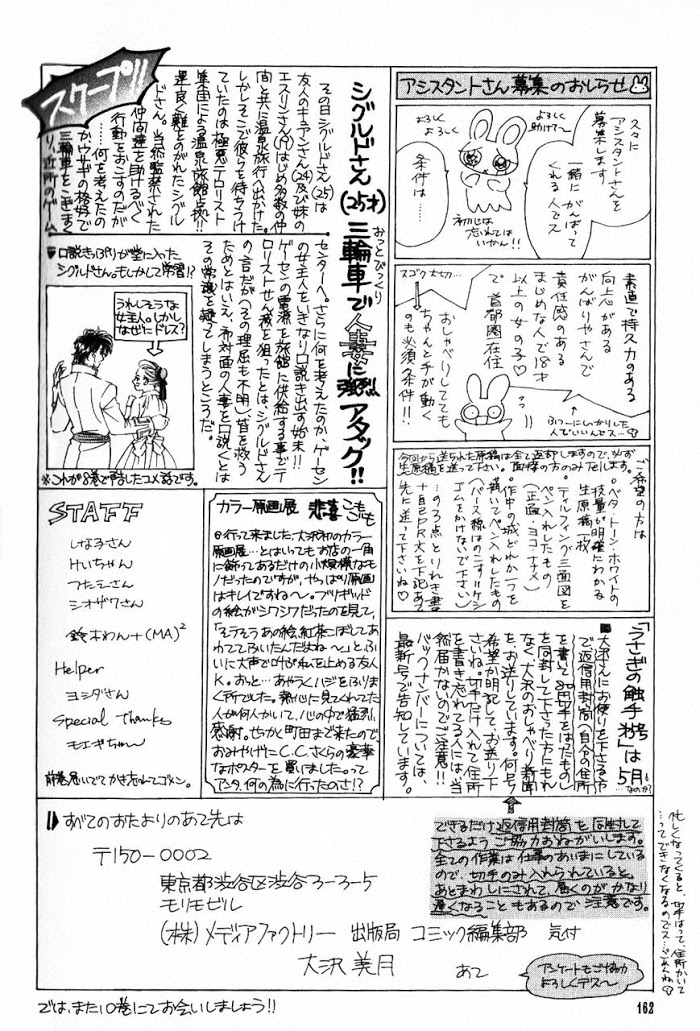 アシスタントさん募集のおしらせ
久々に
アシスタントさんを
募集します。
一緒にがんばって
くれる人でス
条件は…
よろしく
よろしく
よろしく
助けて〜
初心は
忘れては
いかん!!
素直で持久力のある
向上心がある
がんばりやさんで
責任感のある
まじめな人で18才
以上の女の子♡
で 首都圏在住
スゴク大切…
おしゃべりしてても
ちゃんと手が動く
のも必須条件!!
ふつーにしっかりした
人でいいんでス…
今回から送られた原稿は全て返却しますので、必ず
生原稿を送って下さい。面接の方のみTelします。
ご希望の方は
・ベタ・トーン・ホワイトの
技量が明確にわかる
生原稿一枚
・ティルフィング三面図を
ペン入れしたもの
(正面・ヨコ・ナナメ)
・作中の城どれか一つを
描いてペン入れしたもの
(パース線はのこす=ケシ
ゴムをかけないで下さい)
…の3点とりれき書
+自己PR文を下記あて
先に送って下さいね♡
スクープ!!
シグルドさん(25才)三輪車で人妻に強烈アタック!!
おっとびっくり
その日シグルドさん(25)は
友人のキュアンさん(24)及び妹の
エスリンさん(19)はじめ多数の仲
間と共に温泉旅行へ出かけた。
しかしそこで彼らを待ちうけ
ていたのは極悪テロリスト
集団による温泉旅館占拠!!
運良く難をのがれたシグル
ドさん。当然監禁された
仲間達を助けるべく
行動をおこすのだが
……何を考えたの
かウサギの格好で
三輪車をこぎまく
り、近所のゲーム
センターへ。さらに何を考えたのか、ゲーセン
の女主人をいきなり口説き出す始末!!
ゲーセンの電源を旅館に供給する事でテ
ロリストせん滅を狙ったとはシグルドさん
の言だが(その理屈も不明)、皆を救う
ためとはいえ、初対面の人妻を口説くとは
その常識を疑ってしまうところだ。
▼口説きっぷりが堂に入った
シグルドさん。もしかして常習!?
うれしそうな
女主人。しかし
なぜにドレス?
※これが8巻で予告したコメ話です。
STAFF
しなるさん
けいちゃん
つたこーさん
シオザワさん
鈴木わん+(MA)²
Helper
ヨシダさん
Special Thanks
モエギちゃ〜ん
前巻急いでてかき忘れてゴメン。
カラー原画展 悲喜こもごも
◎行って来ました、大沢初のカラー
原画展…とはいってもお店の一角
に飾ってあるだけの小規模なモ
ノだったのですが、やっぱり原画
はキレイですね〜。ブリギッド
の絵がシワシワだったのを見て、
「そうそうあの絵、紅茶こぼしてあ
わててふいたんだよね〜」とふ
いに大声で叫ぶ私を止める友人
K。おっと…あやうくハジをふりま
く所でした。熱心に見てくれてた
人が何人かいて、心の中で猛烈に
感謝。せっかく町田まで来たので、
おみやげにC.C.さくらの豪華
なポスターを買いました。って
アンタ、何の為に行ったのさ!?
「うさぎの触手21号」は5月。
…なのか?
■大沢さんにお便りを下さる方
で返信用封筒(自分の住所
を書いて80円切手をはったもの)
を同封して下さった方にもれ
なく、大沢のおしゃべり新聞
をお送りしています。何号
希望か明記して、お送り下
さいね。切手だけ入れて住所
を書き忘れてる人には、当
然届かないのでご注意!!
バックナンバーについては、
最新号で告知しています。
できるだけ返信用封筒を同封して
下さるようご協力おねがいします。
全ての作業は仕事のあいまにしている
ので、切手のみ入れられていると、
あとまわしにされて、届くのがかなり
遅くなることもあるのでご注意です。
忙しくなってくると、切手はって、住所かいて
…ってできなくなるのでス…ごめんね
すべてのおたよりのあて先は
〒150-0002
東京都渋谷区渋谷3-3-5
モリモビル
(株)メディアファクトリー 出版局 コミック編集部 気付
大沢美月 あて
アンケートもご協力
よろしくデス〜
では、また10巻にてお会いしましょう!!
162